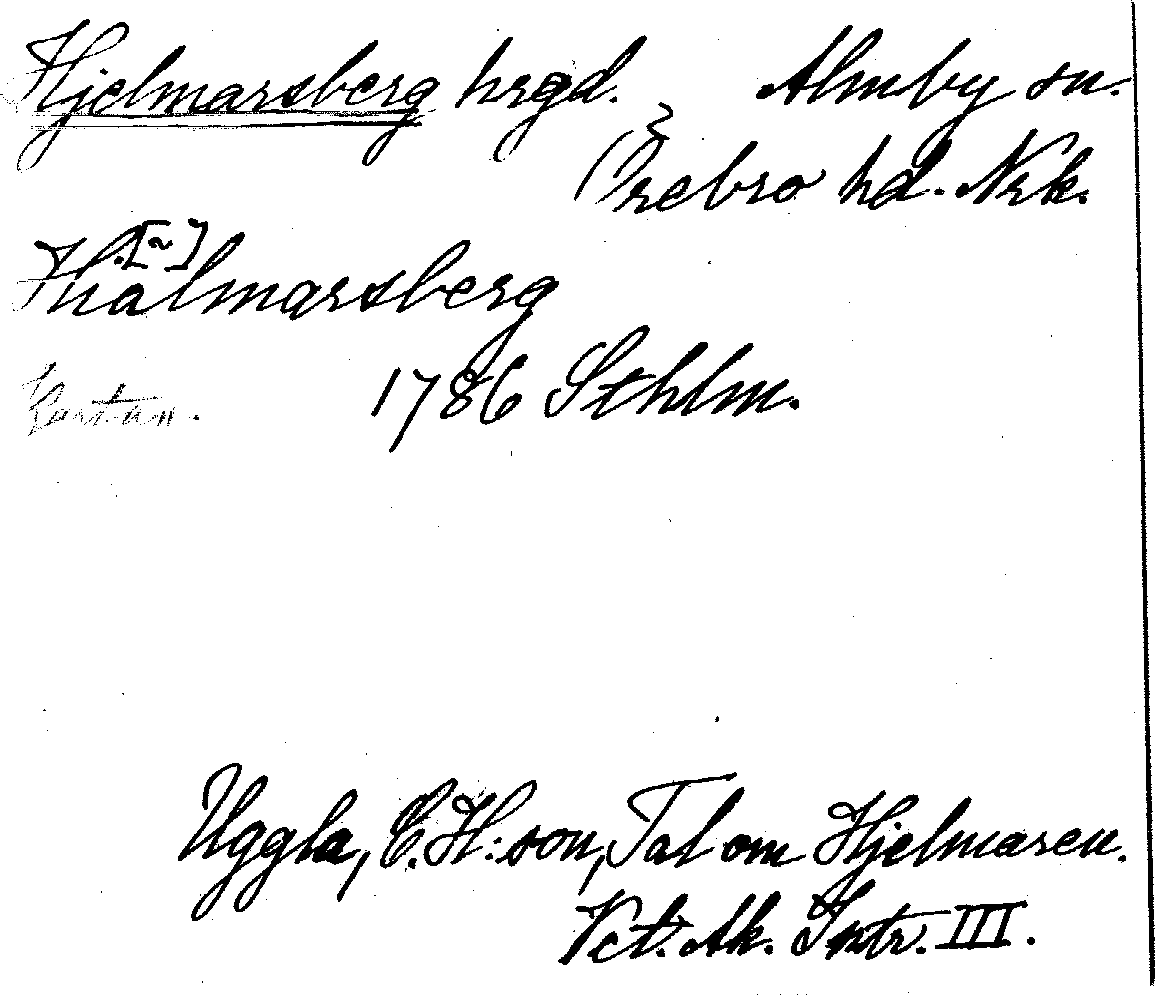 Hjelmarsberg hrgd. Almby sn.
Örebro hd. Nrk.
[~]
Hiälmarsberg
Kartan. 1786 Sthlm.
Uggla, C.H:son, Tal om Hjelmaren.
Vet. Ak. Intr. III.